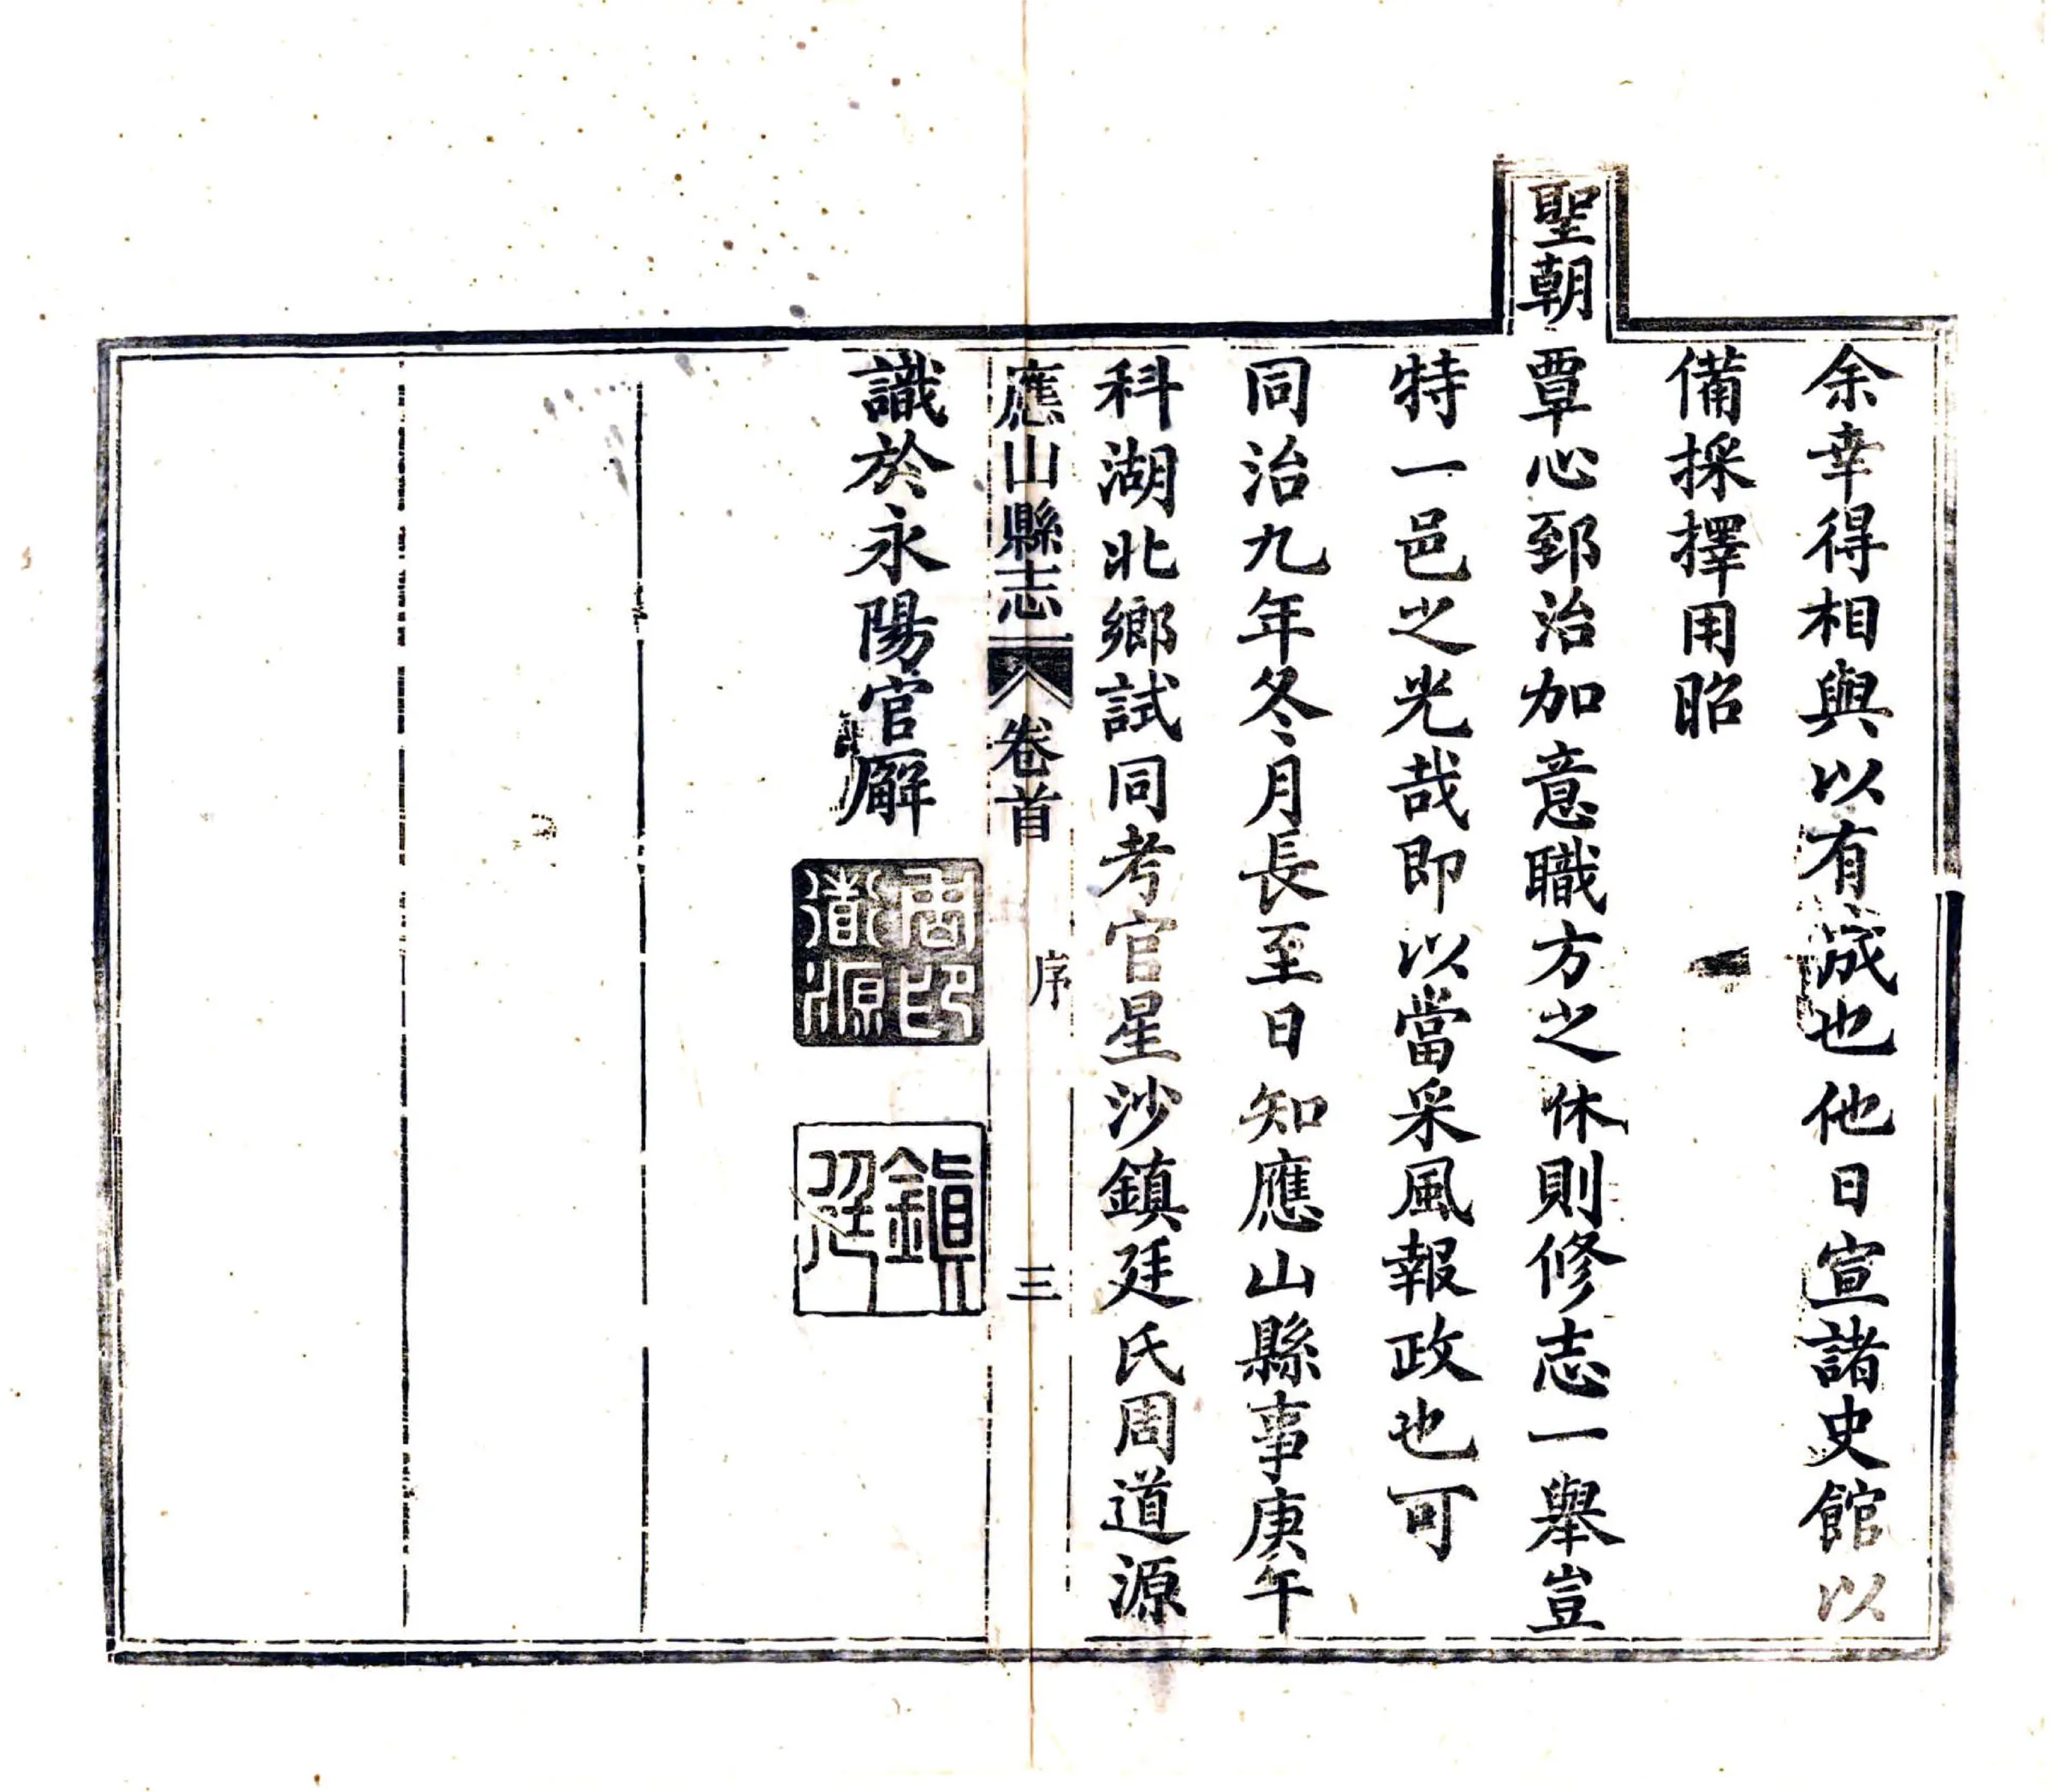 余幸得相與以有成也他日宣諸史館以
備採擇用昭
聖朝覃心郅治加意職方之休則修志一舉豈
特一邑之光哉即以當采風報政也可
同治九年冬月長至日知應山縣事庚午
科湖北鄉試同考官星沙鎮廷氏周道源
應山縣志 卷首 序 三
識於永陽官廨
周印道源
鎮廷